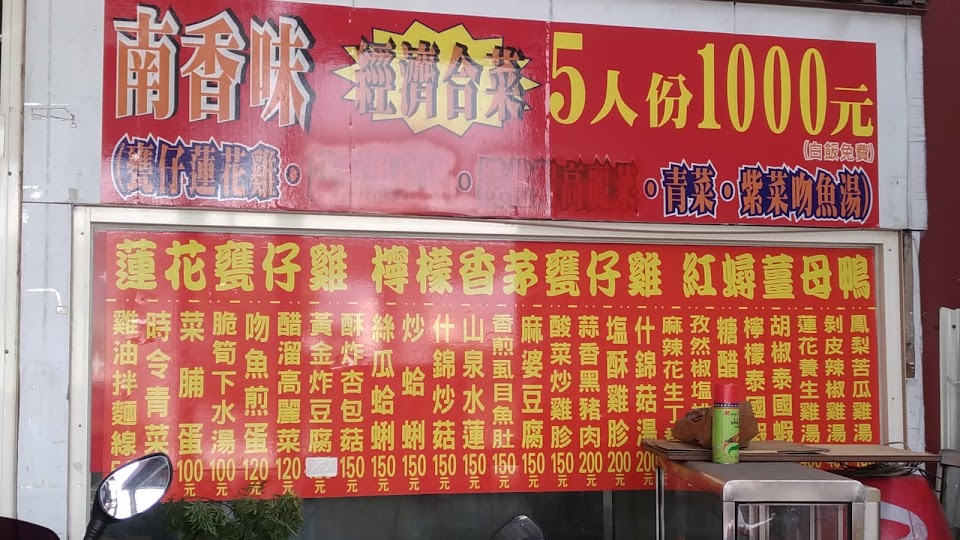 南香味 經濟合菜 5人份1000元
(白飯免費)
(甕仔蓮花雞。 。 高麗菜。青菜。紫菜吻魚湯)
蓮花甕仔雞 檸檬香茅甕仔雞 紅蟳薑母鴨
雞油拌麵線
時令青菜
菜脯蛋 100元
脆筍下水湯 100元
吻魚煎蛋 120元
醋溜高麗菜 120元
黃金炸豆腐 元
酥炸杏包菇 150元
絲瓜蛤蜊 150元
炒蛤蜊 150元
什錦炒菇 150元
山泉水蓮 150元
香煎虱目魚肚 150元
麻婆豆腐 150元
酸菜炒雞胗 150元
蒜香黑豬肉 200元
塩酥雞胗 200元
什錦菇湯 200元
麻辣花生丁
孜然椒塩
糖醋
檸檬泰國蝦
胡椒泰國蝦
蓮花養生雞湯
剝皮辣椒雞湯
鳳梨苦瓜雞湯